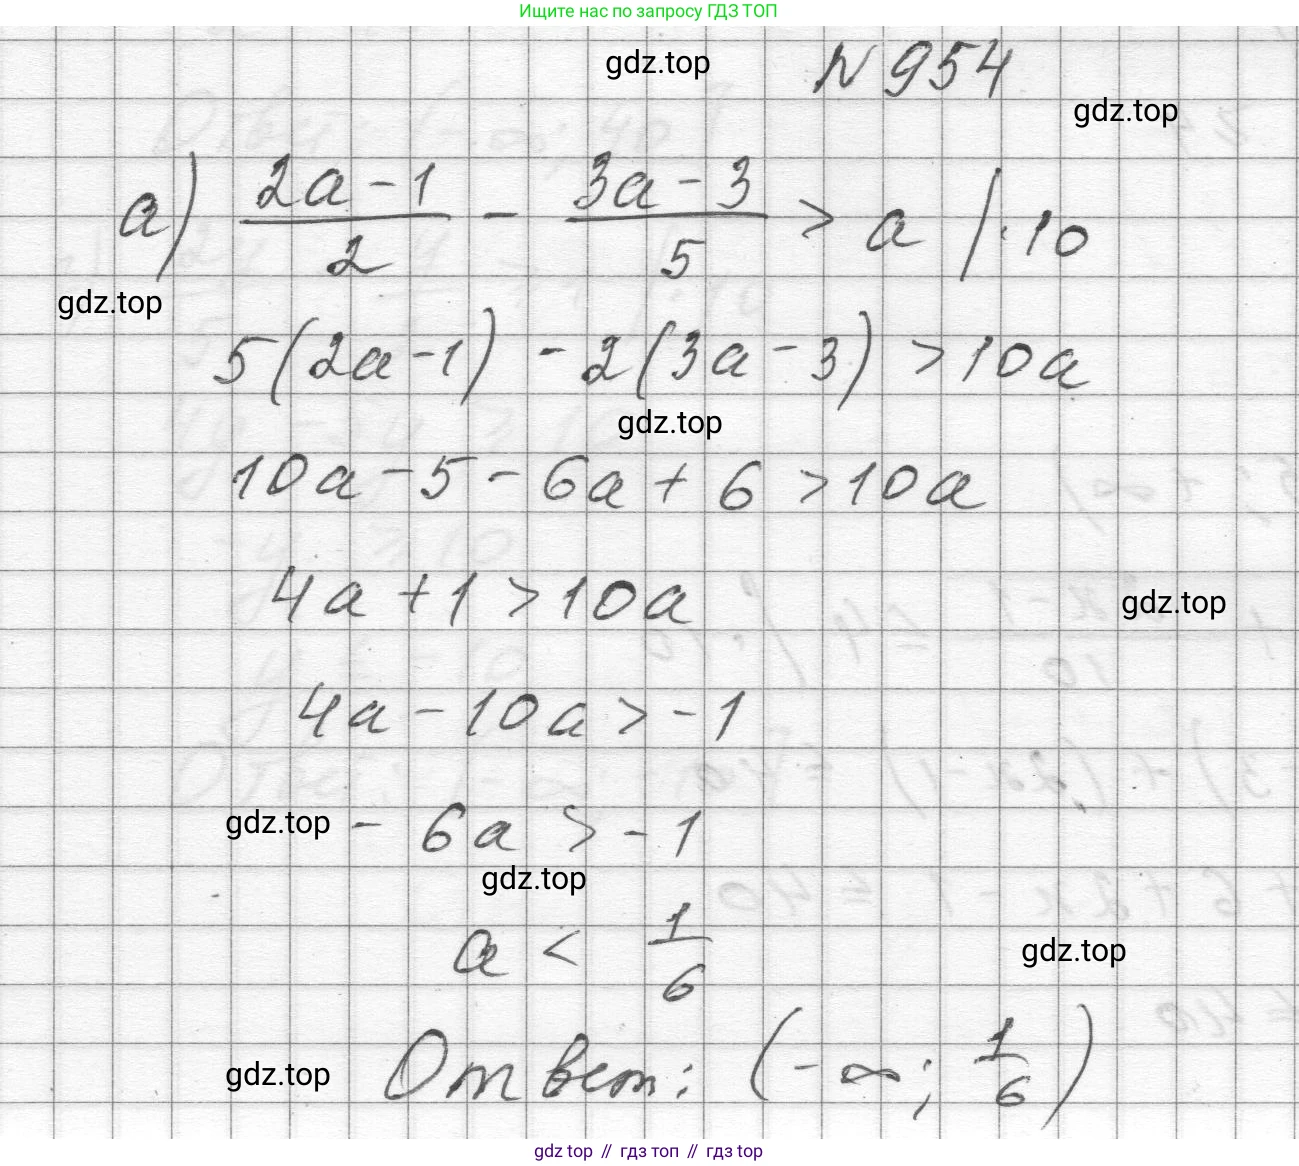 Ищите нас по запросу ГДЗ ТОП
gdz.top
N 954
gdz.top
а) \frac{2a-1}{2} - \frac{3a-3}{5} > a /·10
gdz.top
5(2a-1) - 2(3a-3) > 10a
gdz.top
10a - 5 - 6a + 6 > 10a
4a + 1 > 10a
gdz.top
4a - 10a > -1
gdz.top
- 6a > -1
gdz.top
a < \frac{1}{6}
gdz.top
gdz.top
Ответ: (-∞; \frac{1}{6})
gdz top // гдз топ // гдз top